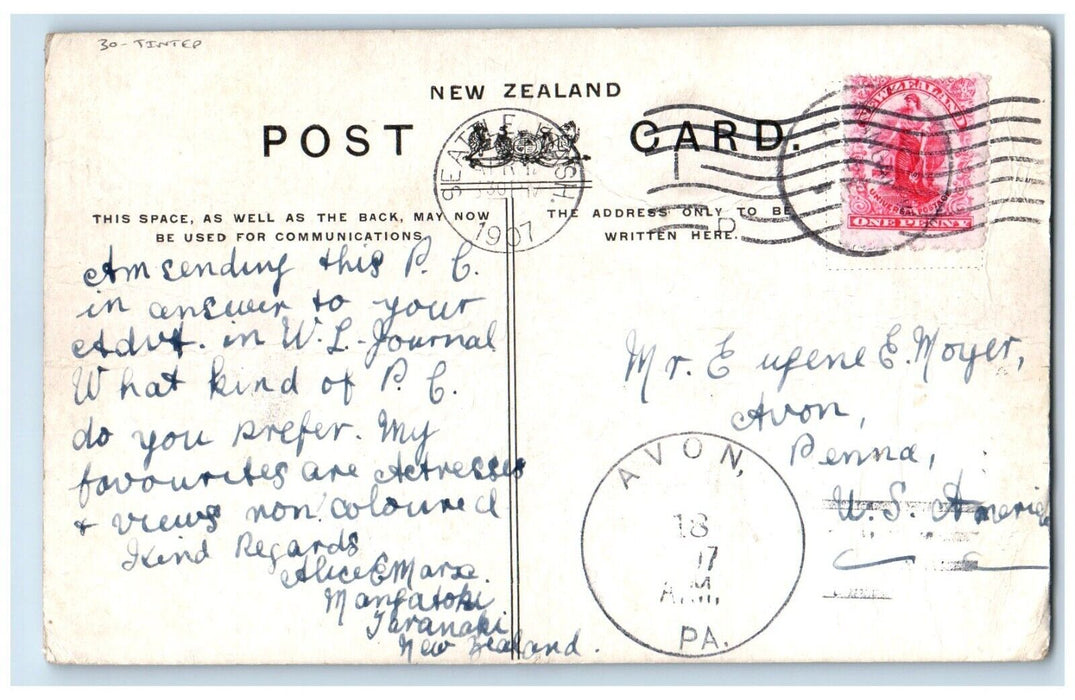 30-TINTED
NEW ZEALAND
POST CARD.
SEATTLE, WASH.
APR
1907
ONE PENNY
THIS SPACE, AS WELL AS THE BACK, MAY NOW
BE USED FOR COMMUNICATIONS.
THE ADDRESS ONLY TO BE
WRITTEN HERE.
Am sending this P. C.
in answer to your
Advt. in W. L. Journal
What kind of P. C.
do you prefer. My
favourites are Actresses
+ views non coloured
Kind Regards
Alice E Marx.
Mangatoki
Taranaki
New Zealand.
Mr. Eugene E. Moyer,
Avon,
Penna,
U. S. America
AVON,
18
A.M.
PA.